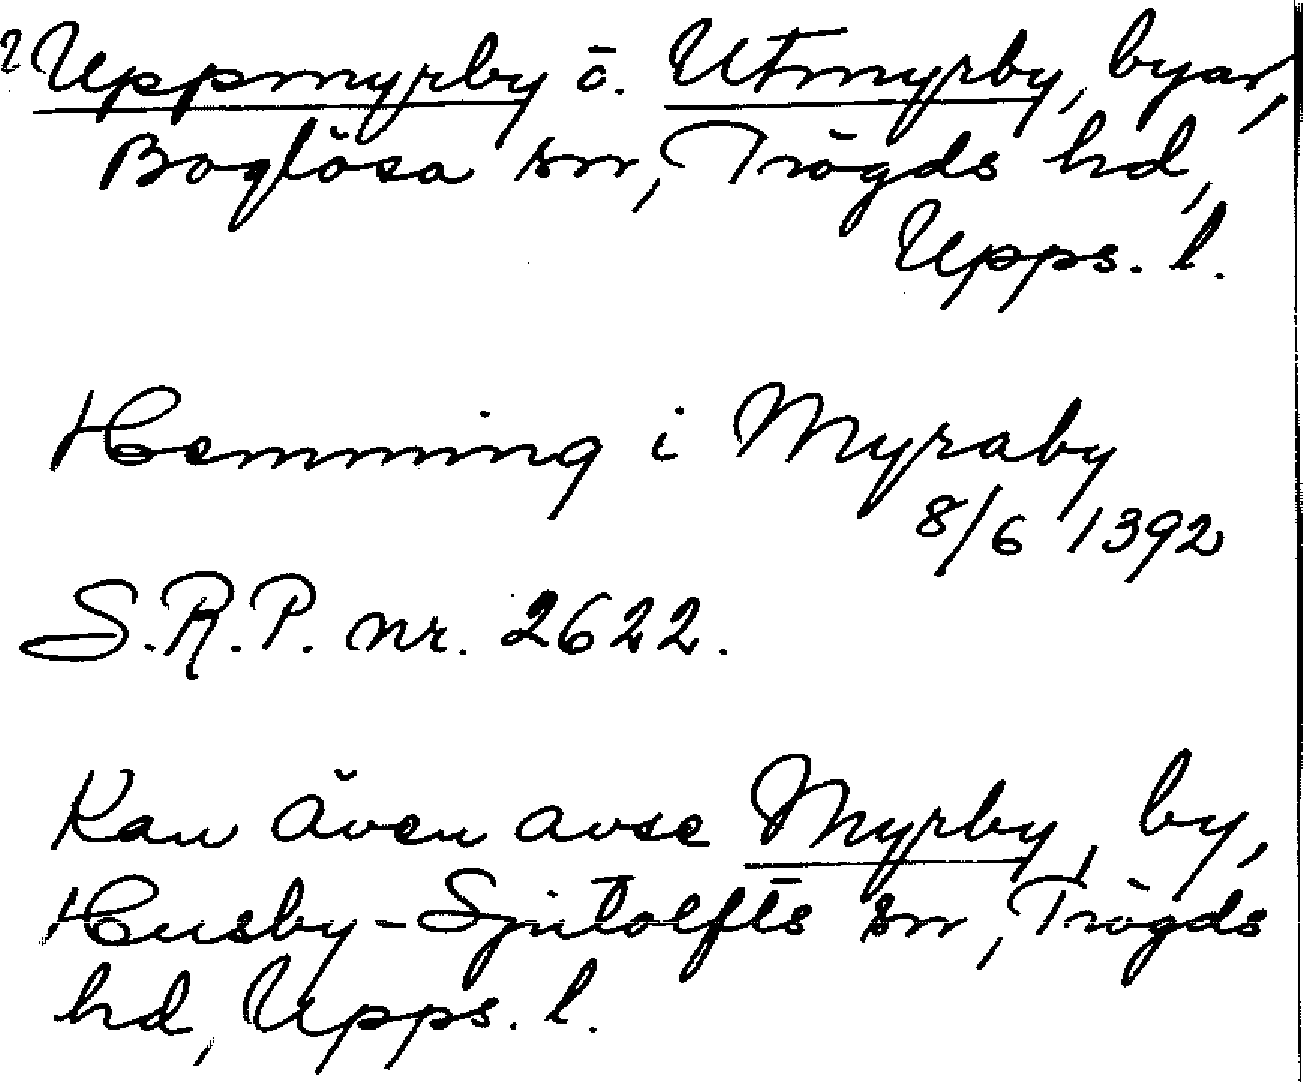 ? Uppmyrby o. Utmyrby, byar,
Boglösa sn, Trögds hd,
Upps. l.
Hemming i Myraby
8/6 1392
S.R.P. nr. 2622.
Kan även avse Myrby, by,
Husby-Sjutolfts sn, Trögds
hd, Upps. l.